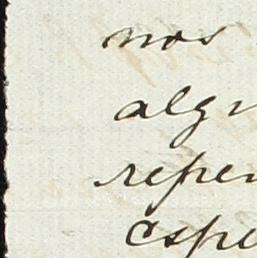 nos
algu
repen
espe